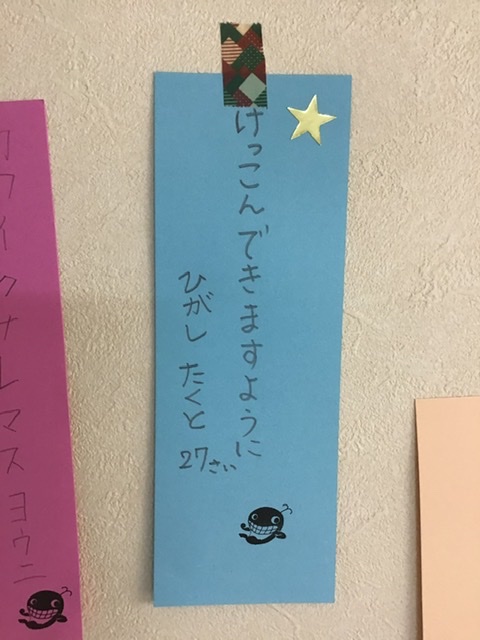 けっこんできますように
ひがし たくと
27さい
カワイクナレマスヨウニ